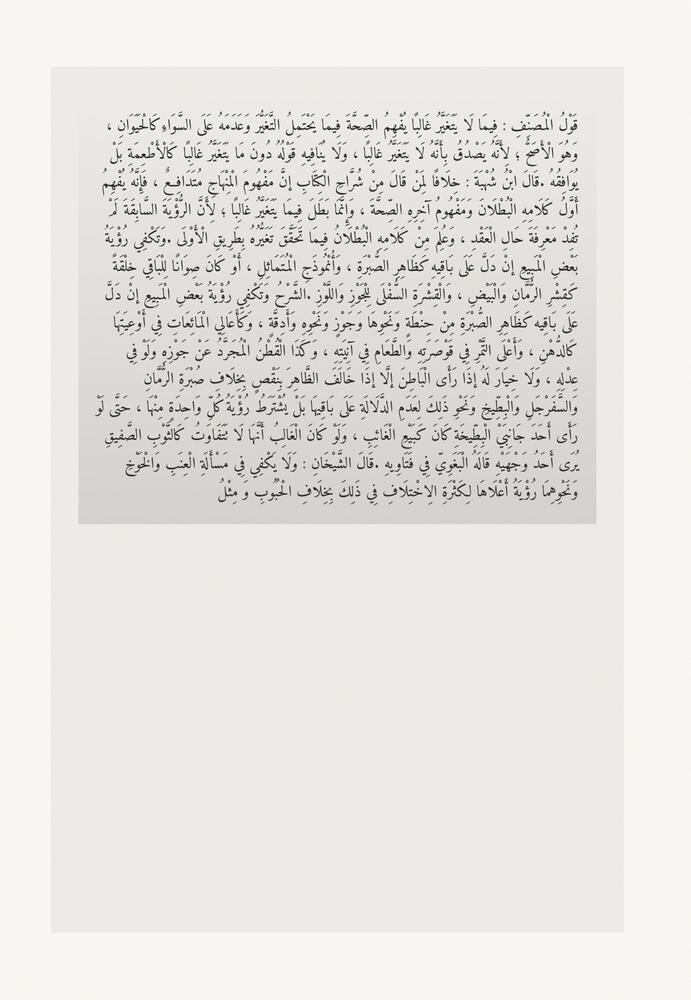 قَوْلُ الْمُصَنِّفِ : فِيمَا لَا يَتَغَيَّرُ غَالِبًا يُفْهِمُ الصِّحَّةَ فِيمَا يَحْتَمِلُ التَّغَيُّرَ وَعَدَمَهُ عَلَى السَّوَاءِ كَالْحَيَوَانِ ،
وَهُوَ الْأَصَحُّ ؛ لِأَنَّهُ يَصْدُقُ بِأَنَّهُ لَا يَتَغَيَّرُ غَالِبًا ، وَلَا يُنَافِيهِ قَوْلُهُ دُونَ مَا يَتَغَيَّرُ غَالِبًا كَالْأَطْعِمَةِ بَلْ
يُوَافِقُهُ .قَالَ ابْنُ شُهْبَةَ : خِلَافًا لِمَنْ قَالَ مِنْ شُرَّاحِ الْكِتَابِ إنَّ مَفْهُومَ الْمِنْهَاجِ مُتَدَافِعٌ ، فَإِنَّهُ يُفْهِمُ
أَوَّلُ كَلَامِهِ الْبُطْلَانَ وَمَفْهُومُ آخِرِهِ الصِّحَّةَ ، وَإِنَّمَا بَطَلَ فِيمَا يَتَغَيَّرُ غَالِبًا ؛ لِأَنَّ الرُّؤْيَةَ السَّابِقَةَ لَمْ
تُفِدْ مَعْرِفَةَ حَالِ الْعَقْدِ ، وَعُلِمَ مِنْ كَلَامِهِ الْبُطْلَانُ فِيمَا تَحَقَّقَ تَغَيُّرُهُ بِطَرِيقِ الْأَوْلَى .وَتَكْفِي رُؤْيَةُ
بَعْضِ الْمَبِيعِ إنْ دَلَّ عَلَى بَاقِيهِ كَظَاهِرِ الصُّبْرَةِ ، وَأُنْمُوذَجِ الْمُتَمَاثِلِ ، أَوْ كَانَ صِوَانًا لِلْبَاقِي خِلْقَةً
كَقِشْرِ الرُّمَّانِ وَالْبَيْضِ ، وَالْقِشْرَةِ السُّفْلَى لِلْجَوْزِ وَاللَّوْزِ .الشَّرْحُ وَتَكْفِي رُؤْيَةُ بَعْضِ الْمَبِيعِ إنْ دَلَّ
عَلَى بَاقِيهِ كَظَاهِرِ الصُّبْرَةِ مِنْ حِنْطَةٍ وَنَحْوِهَا وَجَوْزٍ وَنَحْوِهِ وَأَدِقَّةٍ ، وَكَأَعَالِي الْمَائِعَاتِ فِي أَوْعِيَتِهَا
كَالدُّهْنِ ، وَأَعْلَى التَّمْرِ فِي قَوْصَرَّتِهِ وَالطَّعَامِ فِي آنِيَتِهِ ، وَكَذَا الْقُطْنُ الْمُجَرَّدُ عَنْ جَوْزِهِ وَلَوْ فِي
عِدْلِهِ ، وَلَا خِيَارَ لَهُ إذَا رَأَى الْبَاطِنَ إلَّا إذَا خَالَفَ الظَّاهِرَ بِنَقْصٍ بِخِلَافِ صُبْرَةِ الرُّمَّانِ
وَالسَّفَرْجَلِ وَالْبِطِّيخِ وَنَحْوِ ذَلِكَ لِعَدَمِ الدَّلَالَةِ عَلَى بَاقِيهَا بَلْ يُشْتَرَطُ رُؤْيَةُ كُلِّ وَاحِدَةٍ مِنْهَا ، حَتَّى لَوْ
رَأَى أَحَدَ جَانِبَيْ الْبِطِّيخَةِ كَانَ كَبَيْعِ الْغَائِبِ ، وَلَوْ كَانَ الْغَالِبُ أَنَّهَا لَا تَتَفَاوَتُ كَالثَّوْبِ الصَّفِيقِ
يُرَى أَحَدُ وَجْهَيْهِ قَالَهُ الْبَغَوِيّ فِي فَتَاوِيهِ .قَالَ الشَّيْخَانِ : وَلَا يَكْفِي فِي مَسْأَلَةِ الْعِنَبِ وَالْخَوْخِ
وَنَحْوِهِمَا رُؤْيَةُ أَعْلَاهَا لِكَثْرَةِ الِاخْتِلَافِ فِي ذَلِكَ بِخِلَافِ الْحُبُوبِ وَ مِثْلُ